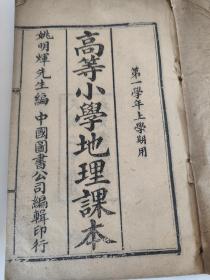 第一學年上學期用
高等小學地理課本
姚明煇先生編 中國圖書公司編輯印行